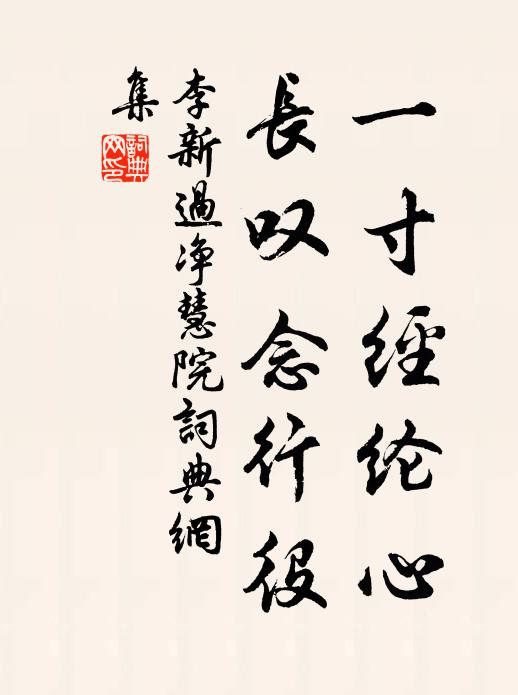 一寸經纶心
長叹念行役
李新過净慧院詞典網
集
詞典網印